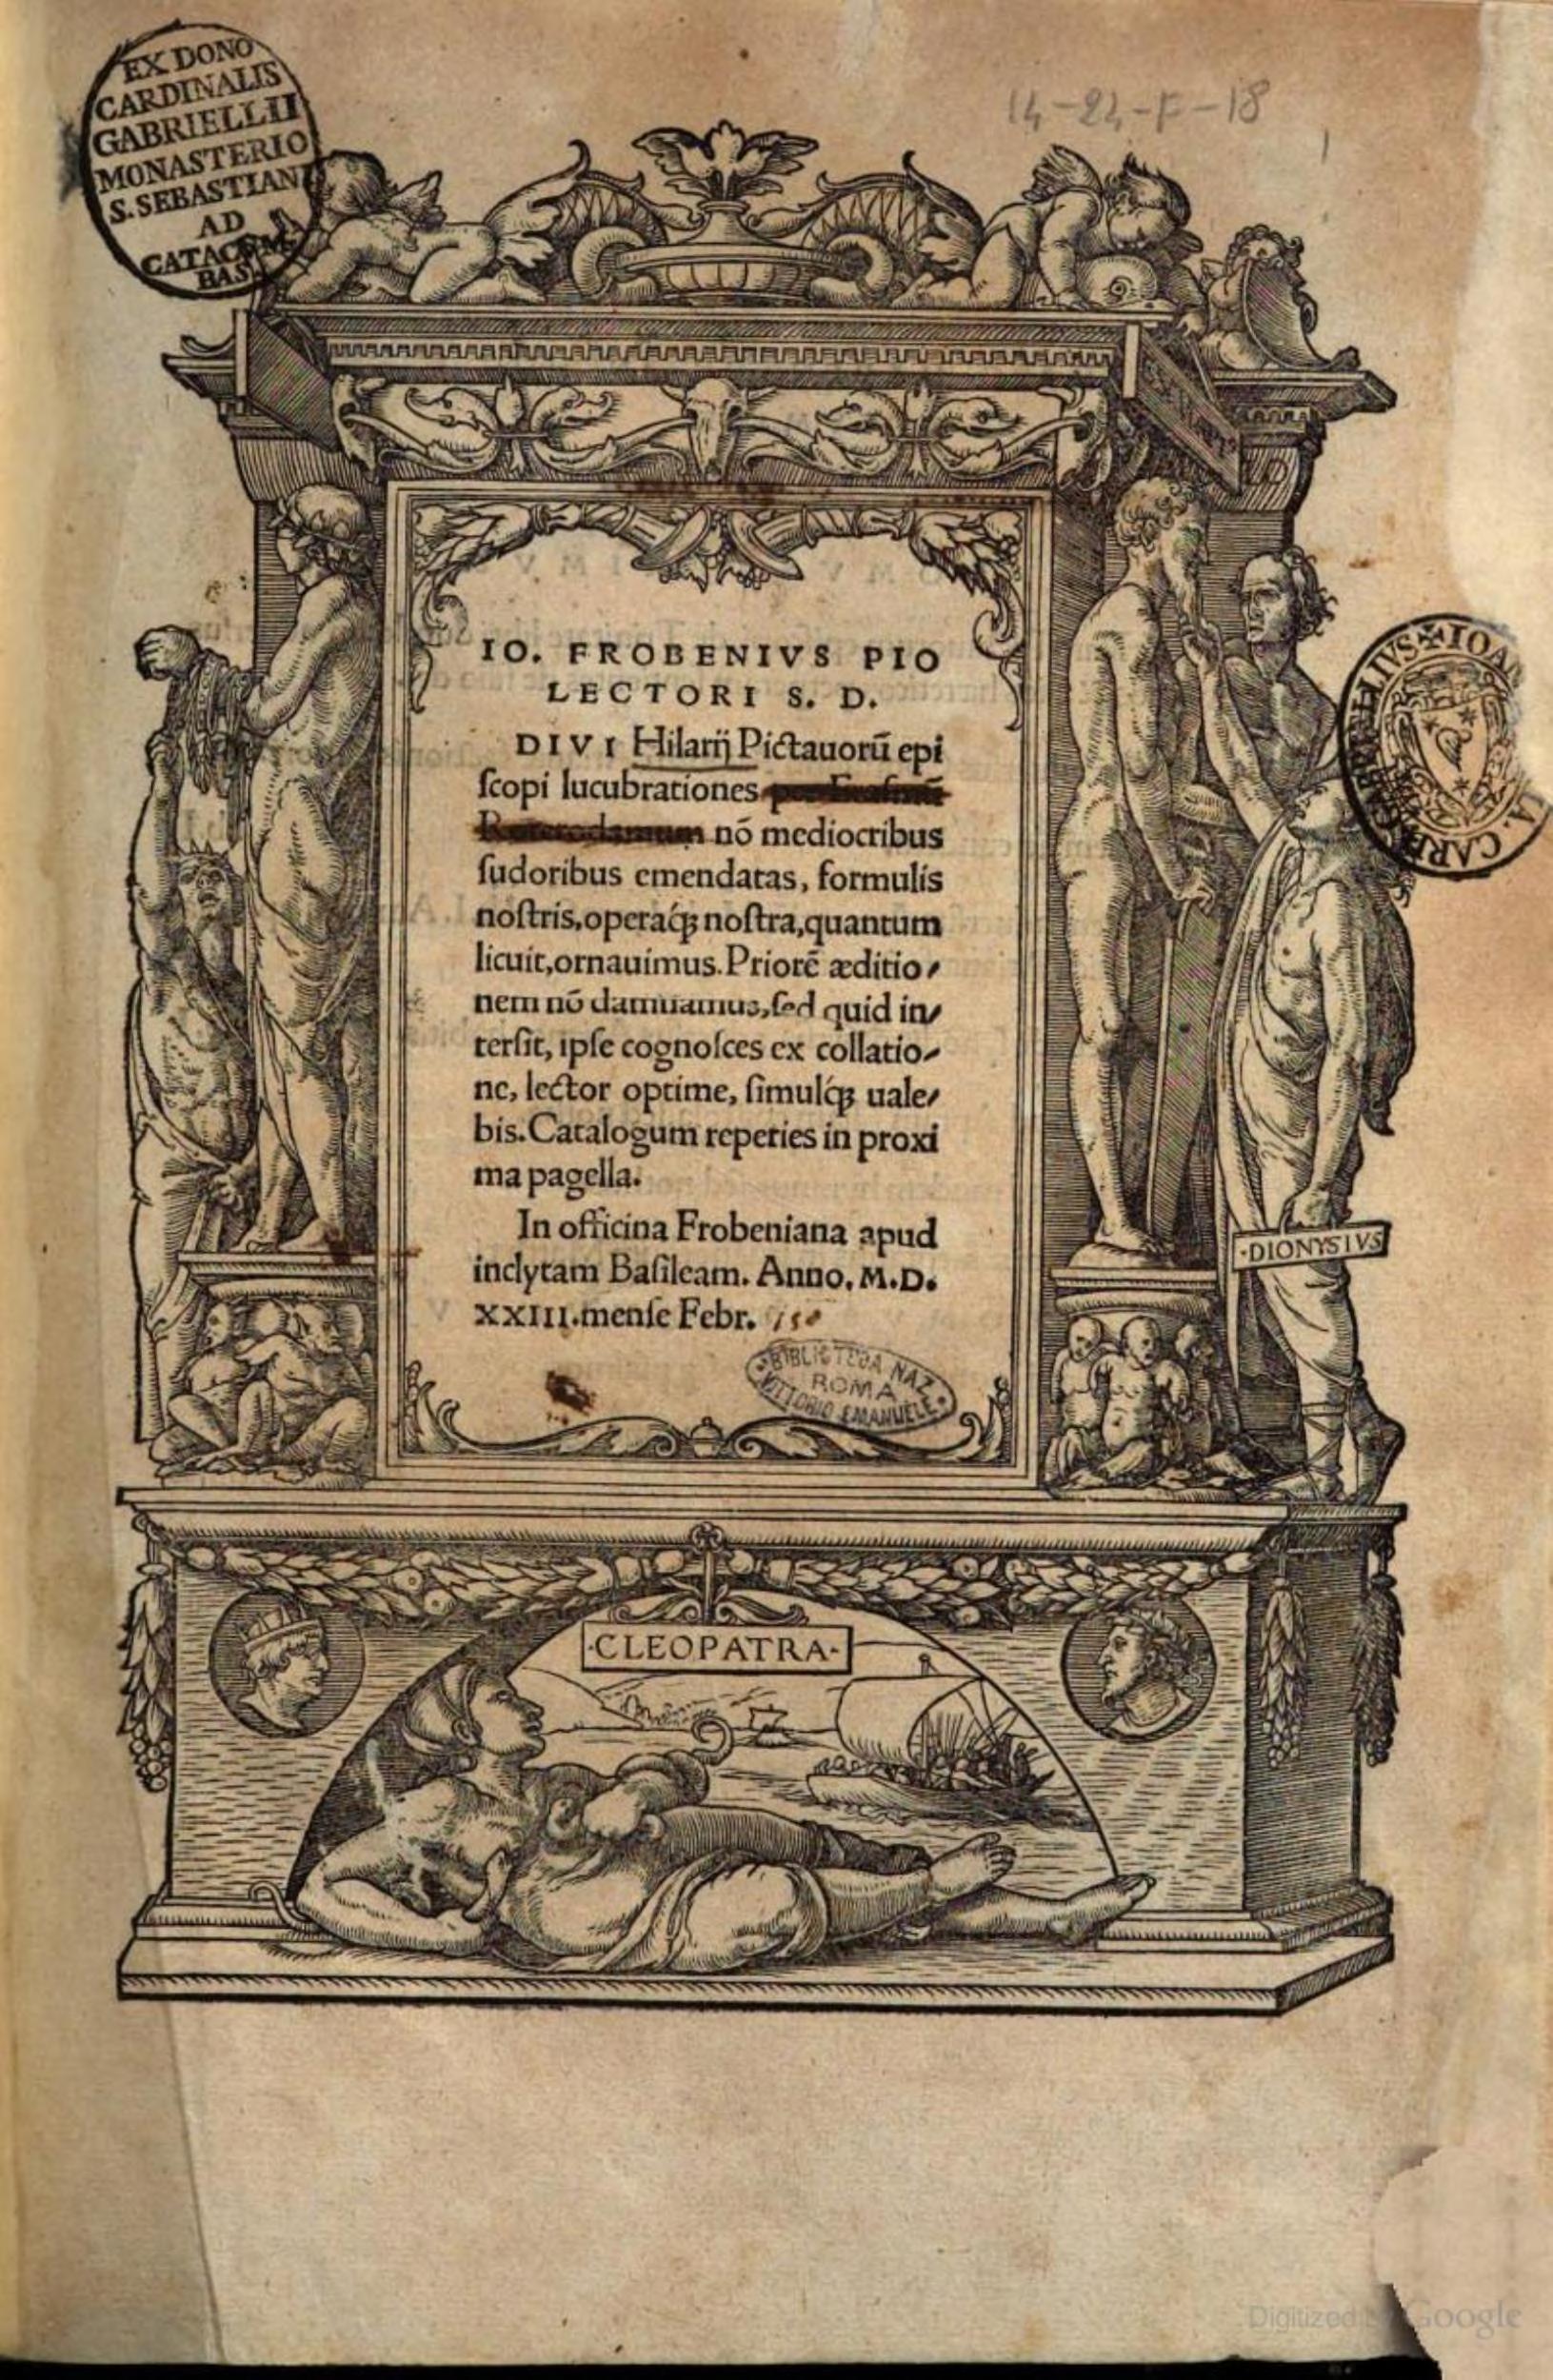 EX DONO
CARDINALIS
GABRIELLII
MONASTERIO
S. SEBASTIANI
AD
CATACUM
BAS
14-24-F-18
IO. FROBENIVS PIO
LECTORI S. D.
DIVI Hilarij Pictauorū epi
ſcopi lucubrationes per Eraſmū
Roterodamum nō mediocribus
ſudoribus emendatas, formulis
noſtris, operaq́ꝫ noſtra, quantum
licuit, ornauimus. Priorē æditio/
nem nō damnamus, ſed quid in/
terſit, ipſe cognoſces ex collatio/
ne, lector optime, ſimulq́ꝫ uale/
bis. Catalogum reperies in proxi
ma pagella.
In officina Frobeniana apud
inclytam Baſileam. Anno. M.D.
XXIII. menſe Febr.
BIBLIOTECA NAZ.
ROMA
VITTORIO EMANUELE
·DIONYSIVS
·CLEOPATRA·
Digitized by Google